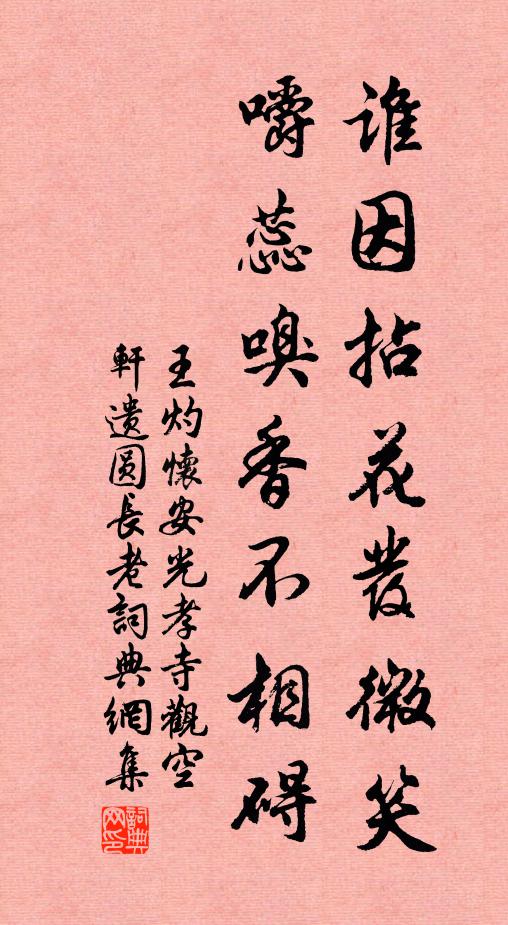 谁因拈花發微笑
嚼蕊嗅香不相碍
王灼懷安光孝寺觀空
軒遗圆長老詞典網集
詞典
网印